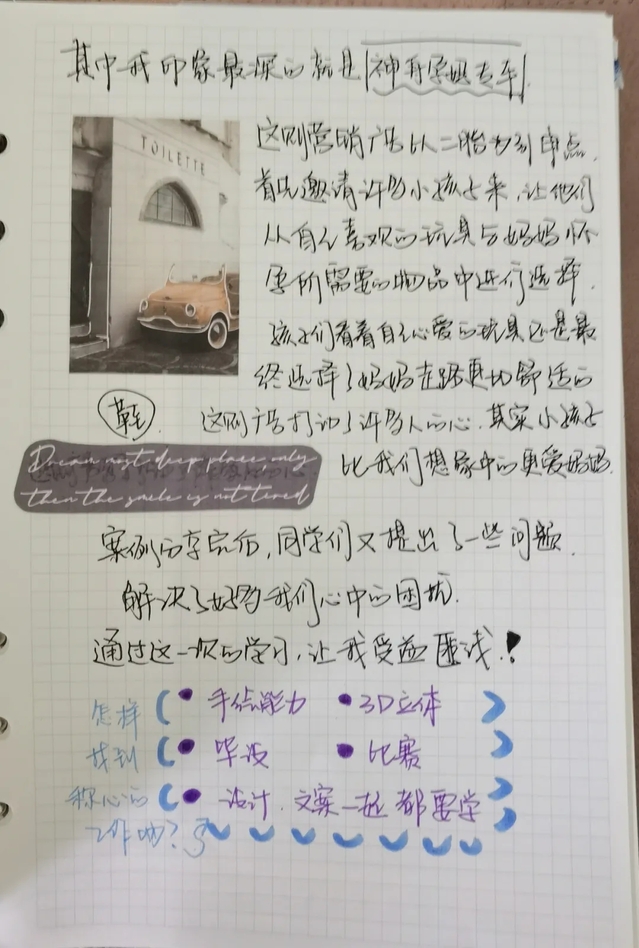 其中我印象最深的就是神舟孕妈专车
TOILETTE
这则营销广告以二胎为引申点.
首先邀请许多小孩子来,让他们
从自己喜欢的玩具与妈妈怀
孕所需要的物品中进行选择.
孩子们看着自己心爱的玩具还是最
终选择了妈妈走路更加舒适的
鞋. 这则广告打动了许多人的心.其实小孩子
Dream not deep place only
then the smile is not tered
比我们想象中的更爱妈妈.
案例分享完后,同学们又提出了一些问题.
解决了好多我们心中的困扰.
通过这一次的学习,让我受益匪浅!
怎样 • 手绘能力 • 3D立体
找到 • 毕设 • 比赛
称心的 • 设计.文案一起都要学
工作呐?